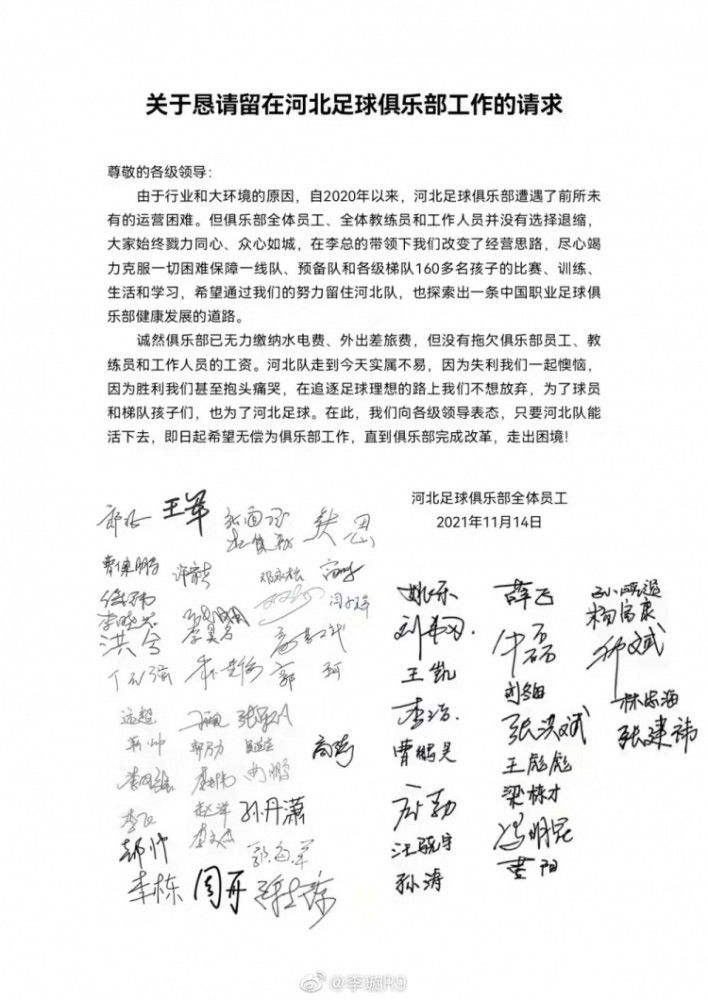 关于恳请留在河北足球俱乐部工作的请求
尊敬的各级领导：
由于行业和大环境的原因，自2020年以来，河北足球俱乐部遭遇了前所未
有的运营困难。但俱乐部全体员工、全体教练员和工作人员并没有选择退缩，
大家始终戮力同心、众心如城，在李总的带领下我们改变了经营思路，尽心竭
力克服一切困难保障一线队、预备队和各级梯队160多名孩子的比赛、训练、
生活和学习，希望通过我们的努力留住河北队，也探索出一条中国职业足球俱
乐部健康发展的道路。
诚然俱乐部已无力缴纳水电费、外出差旅费，但没有拖欠俱乐部员工、教
练员和工作人员的工资。河北队走到今天实属不易，因为失利我们一起懊恼，
因为胜利我们甚至抱头痛哭，在追逐足球理想的路上我们不想放弃，为了球员
和梯队孩子们，也为了河北足球。在此，我们向各级领导表态，只要河北队能
活下去，即日起希望无偿为俱乐部工作，直到俱乐部完成改革，走出困境！
河北足球俱乐部全体员工
2021年11月14日
王军
曹保鹏
洪兮
郭珂
远超
孙丹潇
郝帅
李栋 周开
姚乐
王凯
李浩
曹鹏昊
孙涛
薛飞
牛磊
张洪斌
王彪彪
梁栋才
冯明昆
黄阳
杨富康
林志海
张建祎
@李璇R9